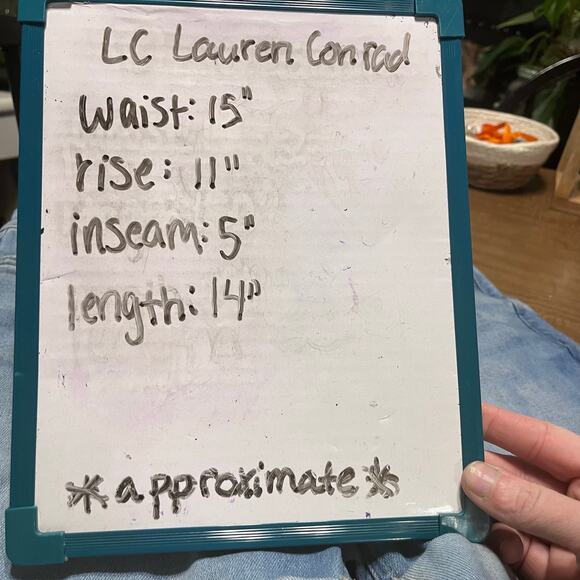 LC Lauren Conrad
waist: 15"
rise: 11"
inseam: 5"
length: 14"
*approximate*